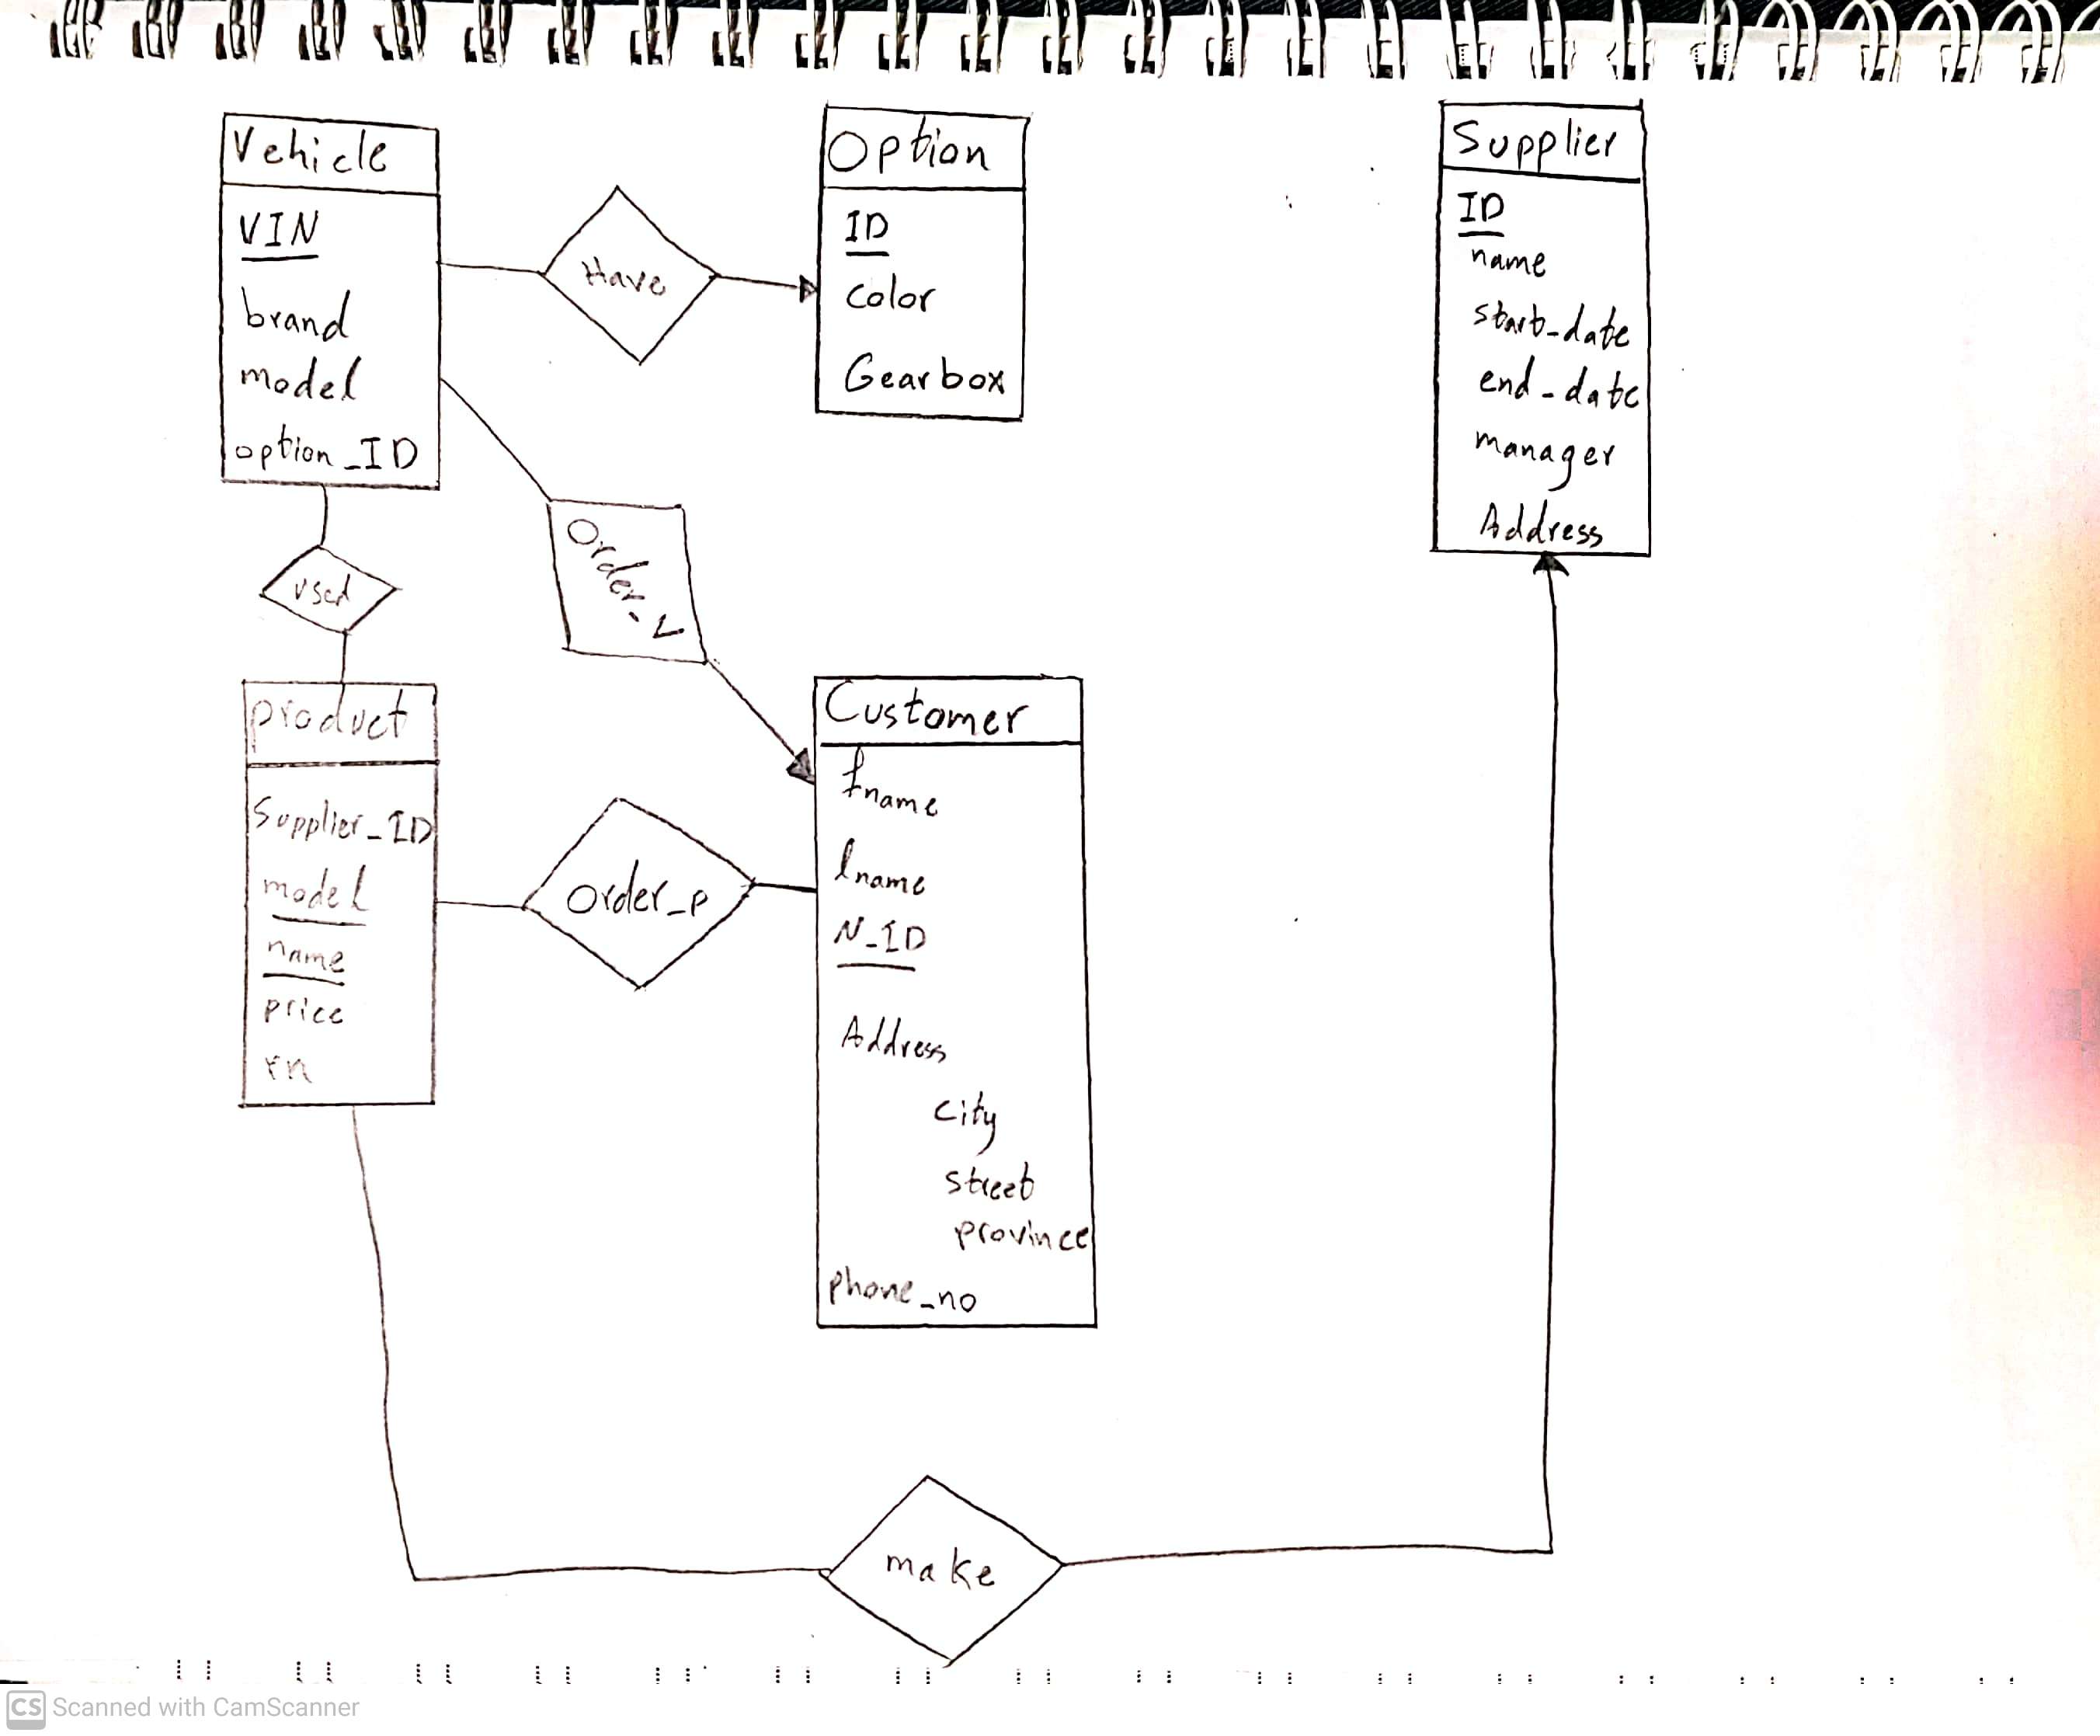 Vehicle
VIN
brand
model
option_ID
Have
Option
ID
color
Gearbox
Supplier
ID
name
start_date
end_date
manager
Address
Order_V
used
product
Supplier_ID
model
name
price
order_p
Customer
fname
lname
N_ID
Address
city
street
province
phone_no
make
CS Scanned with CamScanner